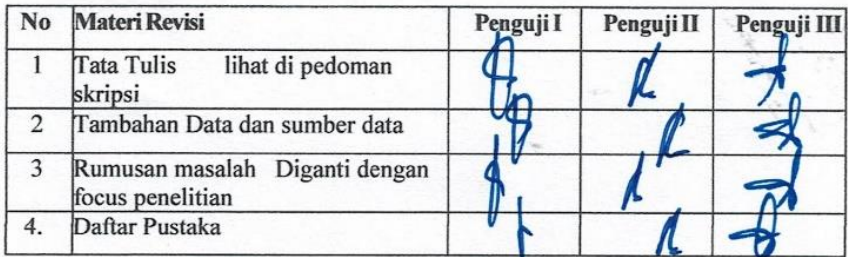 No Materi Revisi Penguji I Penguji II Penguji III
1 Tata Tulis lihat di pedoman
skripsi
2 Tambahan Data dan sumber data
3 Rumusan masalah Diganti dengan
focus penelitian
4. Daftar Pustaka